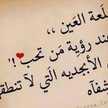 لمعة العين ،،
عند رؤية من تحب ❤!
الأبجديه التي لا تنطق
شفاه